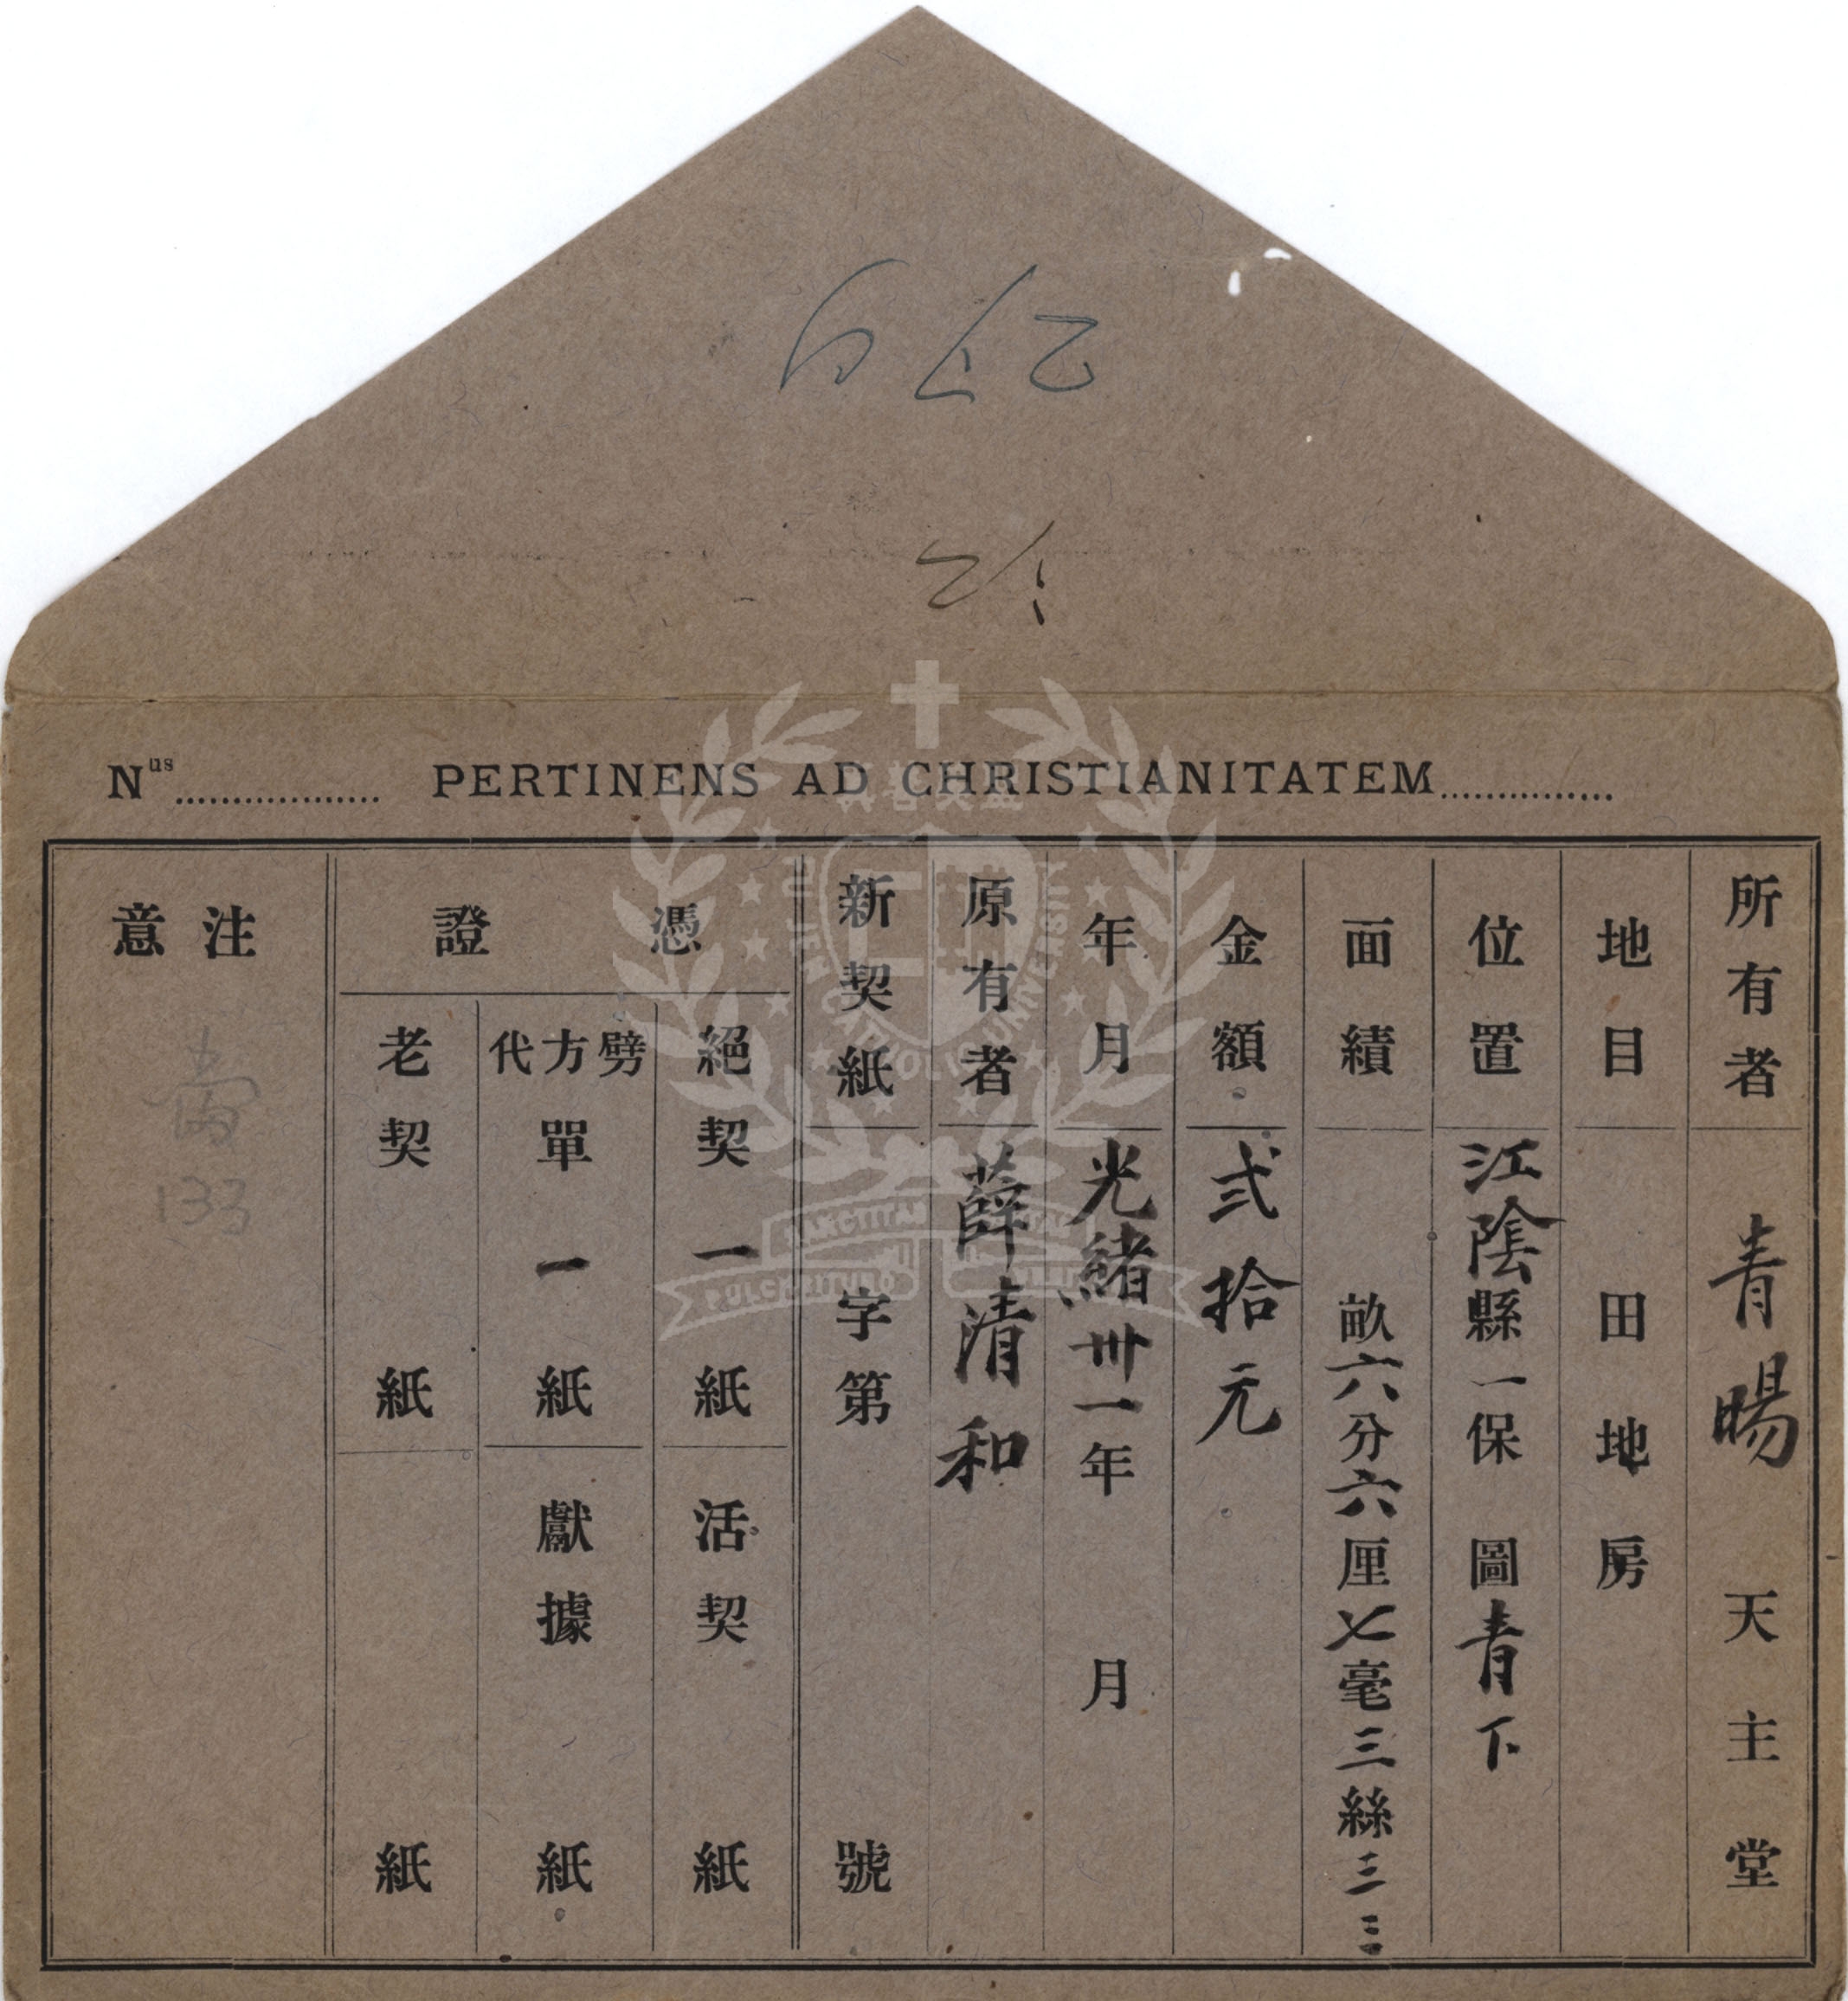 Nus.................. PERTINENS AD CHRISTIANITATEM...............
所有者 青暘天主堂
地目 田地房
位置 江陰縣一保 圖青下
面績 畝六分六厘七毫三絲三三
金額 弍拾元
年月 光緒卅一年 月
原有者 薛清和
新契紙 字第 號
憑證
絕契一紙 活契 紙
劈方代單一紙 獻據 紙
老契 紙 紙
注意
133